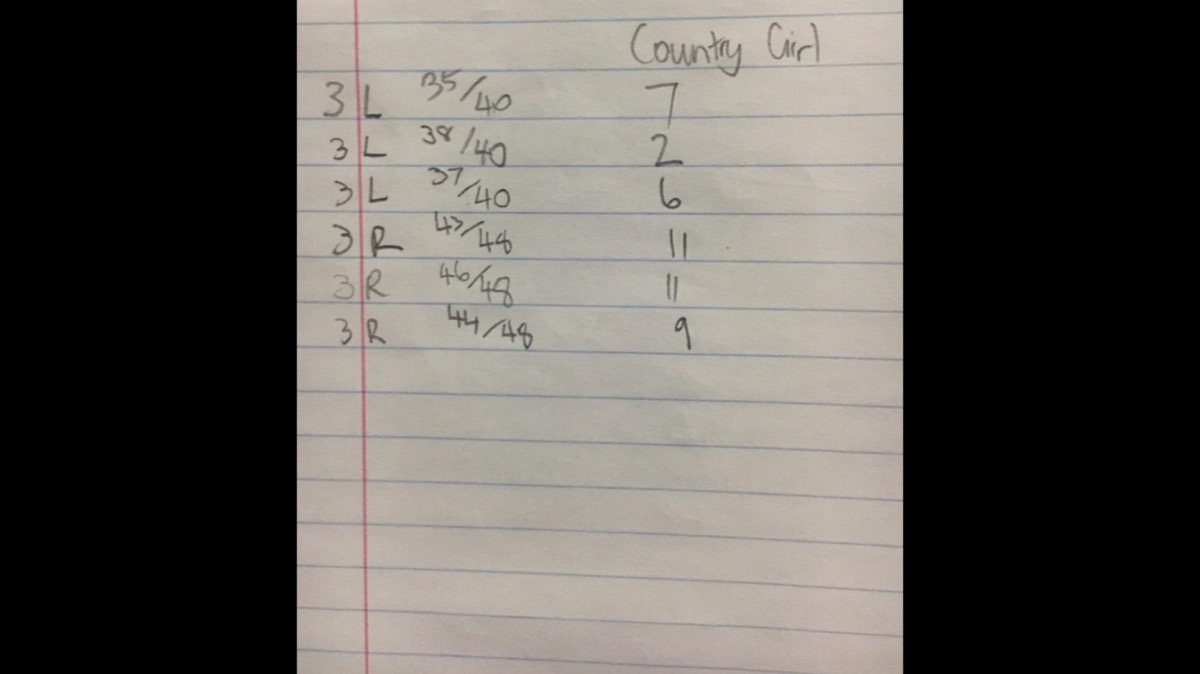 Country Girl
3 L 35/40 7
3 L 38/40 2
3 L 37/40 6
3 R 43/48 11
3 R 46/48 11
3 R 44/48 9